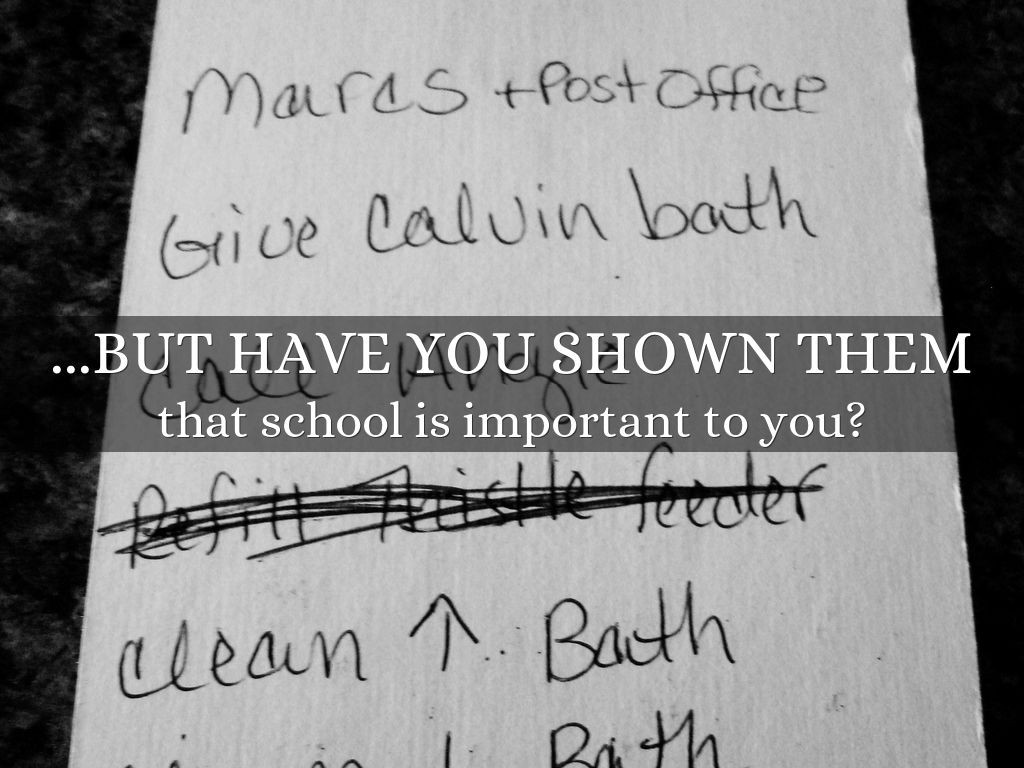 Marcs + Post Office
Give Calvin bath
Call Angie
...BUT HAVE YOU SHOWN THEM
that school is important to you?
Refill Thistle feeder
clean ↑ Bath
Bath